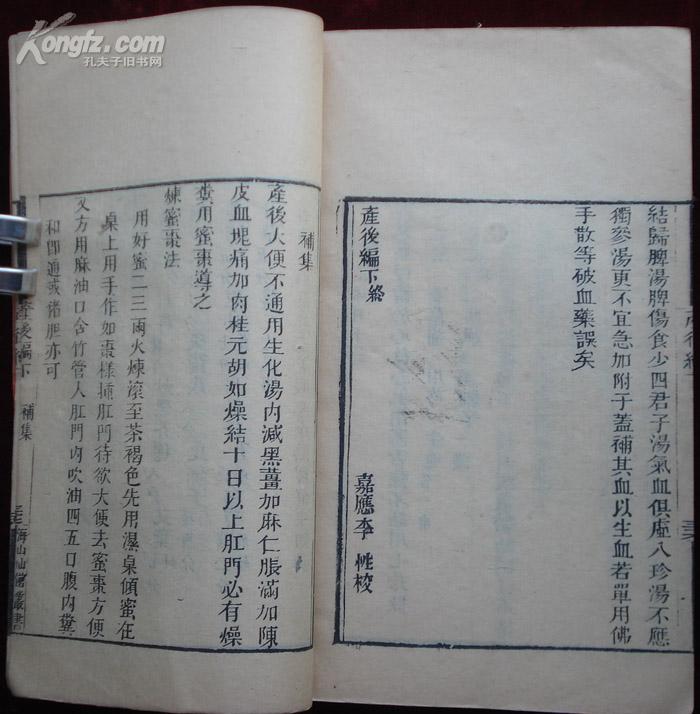 Kongfz.com
孔夫子旧书网
結歸脾湯脾傷食少四君子湯氣血俱虛八珍湯不應
獨參湯更不宜急加附子蓋補其血以生血若單用佛
手散等破血藥誤矣
產後編下終
嘉應李
校
產後編
補集
產後大便不通用生化湯內減黑薑加麻仁脹滿加陳
皮血塊痛加肉桂元胡如燥結十日以上肛門必有燥
糞用蜜棗導之
煉蜜棗法
用好蜜二三兩火煉滾至茶褐色先用濕桌傾蜜在
桌上用手作如棗樣插肛門待欲大便去蜜棗方便
又方用麻油口含竹管入肛門內吹油四五口腹內糞
和即通或豬胆亦可
產後編下
補集
海山仙館叢書